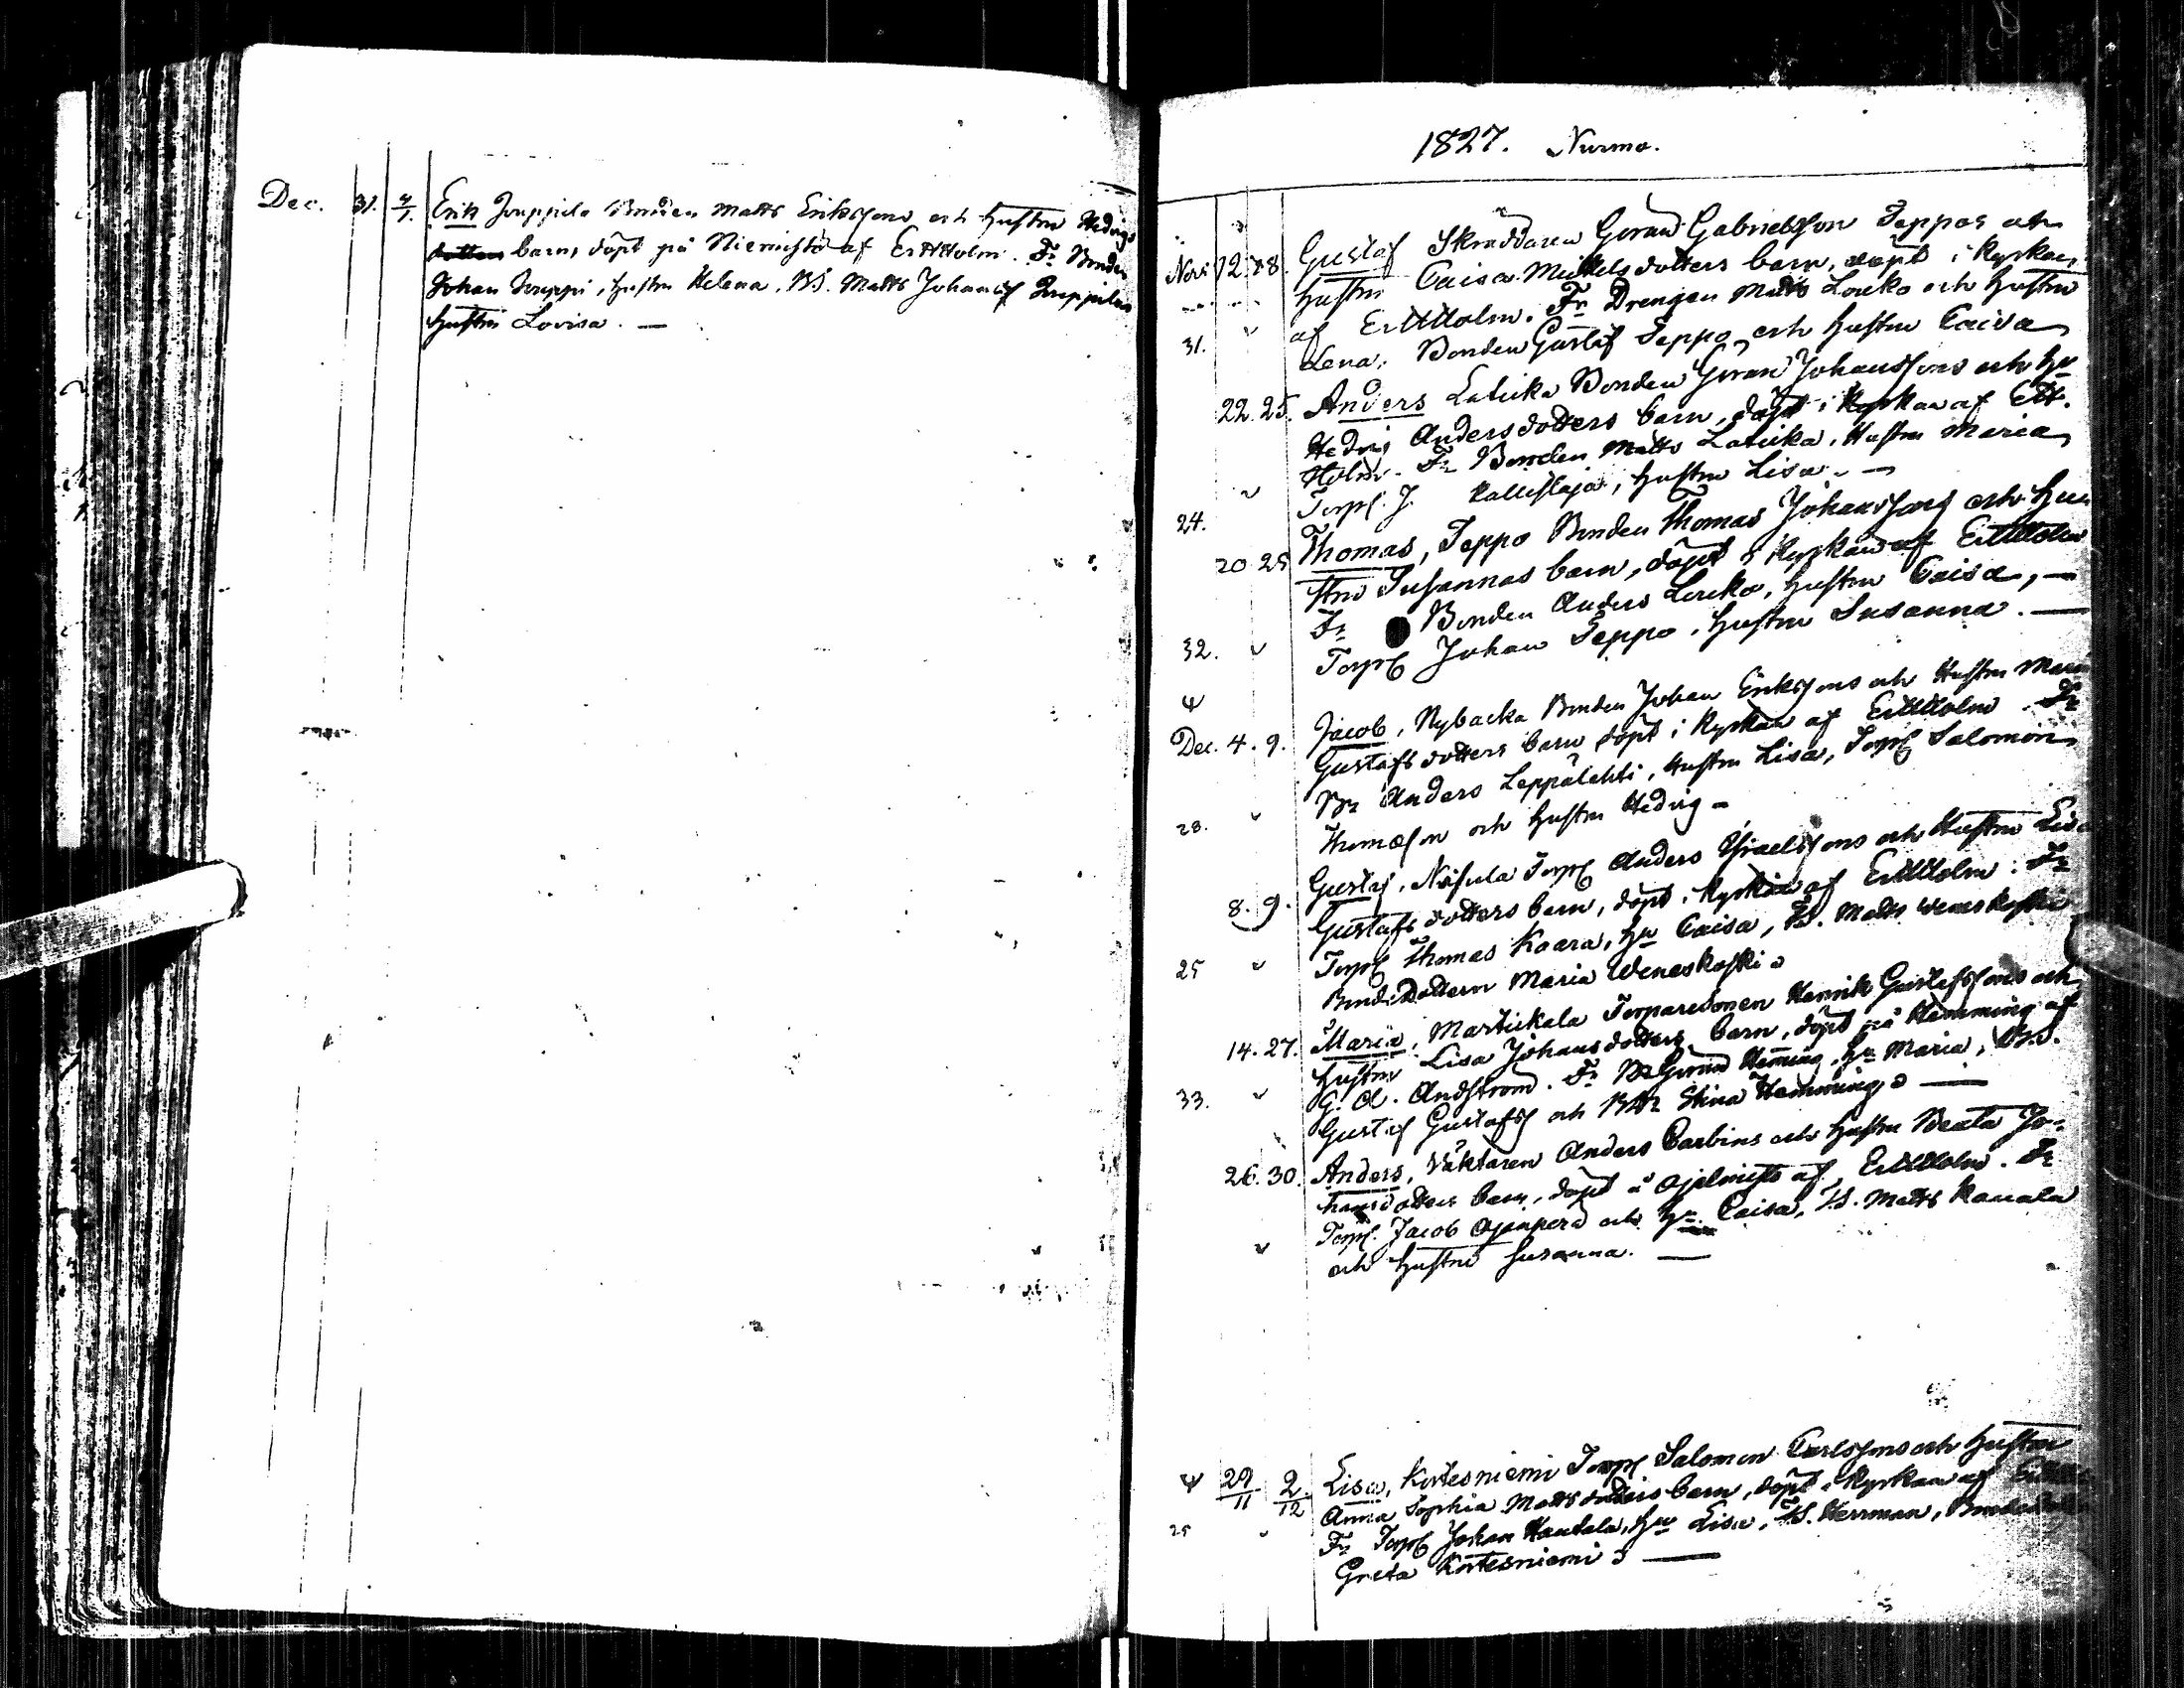 Dec. 31. 4/1. Erik Jouppila Bonden Matts Eriksons och hustru Hedvigs
barn, döpt på Niemistö af Er. Holm. Fr Bonden
Johan Jouppi, hustru Helena, BS. Matts Johansf Jouppila
hustru Lovisa. —
1827. Nurmo.
Nov. 12. 18. Gustaf Skräddaren Göran Gabrielsson Seppos och
hustru Caisa Mickelsdotters barn, döpt i kyrkan
af Er Holm. Fr Drengen Matts Louko och hustru
31. Lena, Bonden Gustaf Seppo och hustru Caisa
22. 25. Anders Latukka Bonden Göran Johanssons och Hu
Hedvig Andersdotters barn, döpt i kyrkan af Er.
Holm. Fr Bonden Matts Latukka, Hustru Maria
24. Torp. J. Kallistaja, hustru Lisa. —
20 25 Thomas, Seppo Bonden Thomas Johanssons och hu
stru Susannas barn, döpt i kyrkan af Er Holm
Fr Bonden Anders Louko, hustru Caisa, —
32. Torp Johan Seppo, hustru Susanna. —
Dec. 4. 9. Jacob, Nybacka Bonden Johan Eriksons och Hustru Maria
Gustafsdotters barn döpt i kyrkan af Er Holm Fr
Br Anders Leppälehti, hustru Lisa, Torp Salomon
28. Thomasson och hustru Hedvig —
8. 9. Gustaf, Torp Anders Israelssons och Hustru Lisa
Gustafsdotters barn, döpt i kyrkan af Er Holm. Fr
Torp Thomas Kaara, Hu Caisa, BS. Matts Weneskoski
25 Bondedottern Maria Weneskoski
14. 27. Maria, Martickala Torparesonen Henrik Gustafssons och
hustru Lisa Johansdotters barn, döpt på Hemming af
G. A. Andström. Fr Br Göran Heming, Hu Maria, BS.
33. Gustaf Gustafsf och BDr Stina Hemming —
26. 30. Anders, Väktaren Anders Carbins och hustru Beata Jo-
hansdotters barn, döpt å af Er Holm. Fr
Torp. Jacob Ojanperä och Hu Caisa, TS. Matts Kauala
och hustru Susanna. —
29/11 2/12 Lisa, Kortesniemi Torp Salomon Carlssons och hustru
Anna Sophia Mattsdotters barn, döpt i kyrkan af
25 Fr Torp Johan Hautala, Hu Lisa, TS. Herrman,
Greta Kortesniemi —